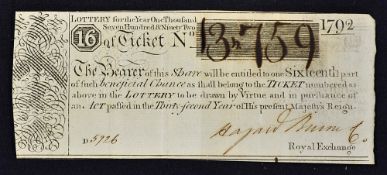 LOTTERY for the Year One Thousand
Seven Hundred & Ninety Two 1792
16 of Ticket No 13,759
The Bearer of this Share will be entitled to one Sixteenth part
of such beneficial Chance as shall belong to the TICKET numbered as
above in the LOTTERY to be drawn by Virtue and in pursuance of
an Act passed in the Thirty second Year of His present Majesty's Reign.
D 5926 Hazard Burne & Co.
Royal Exchange